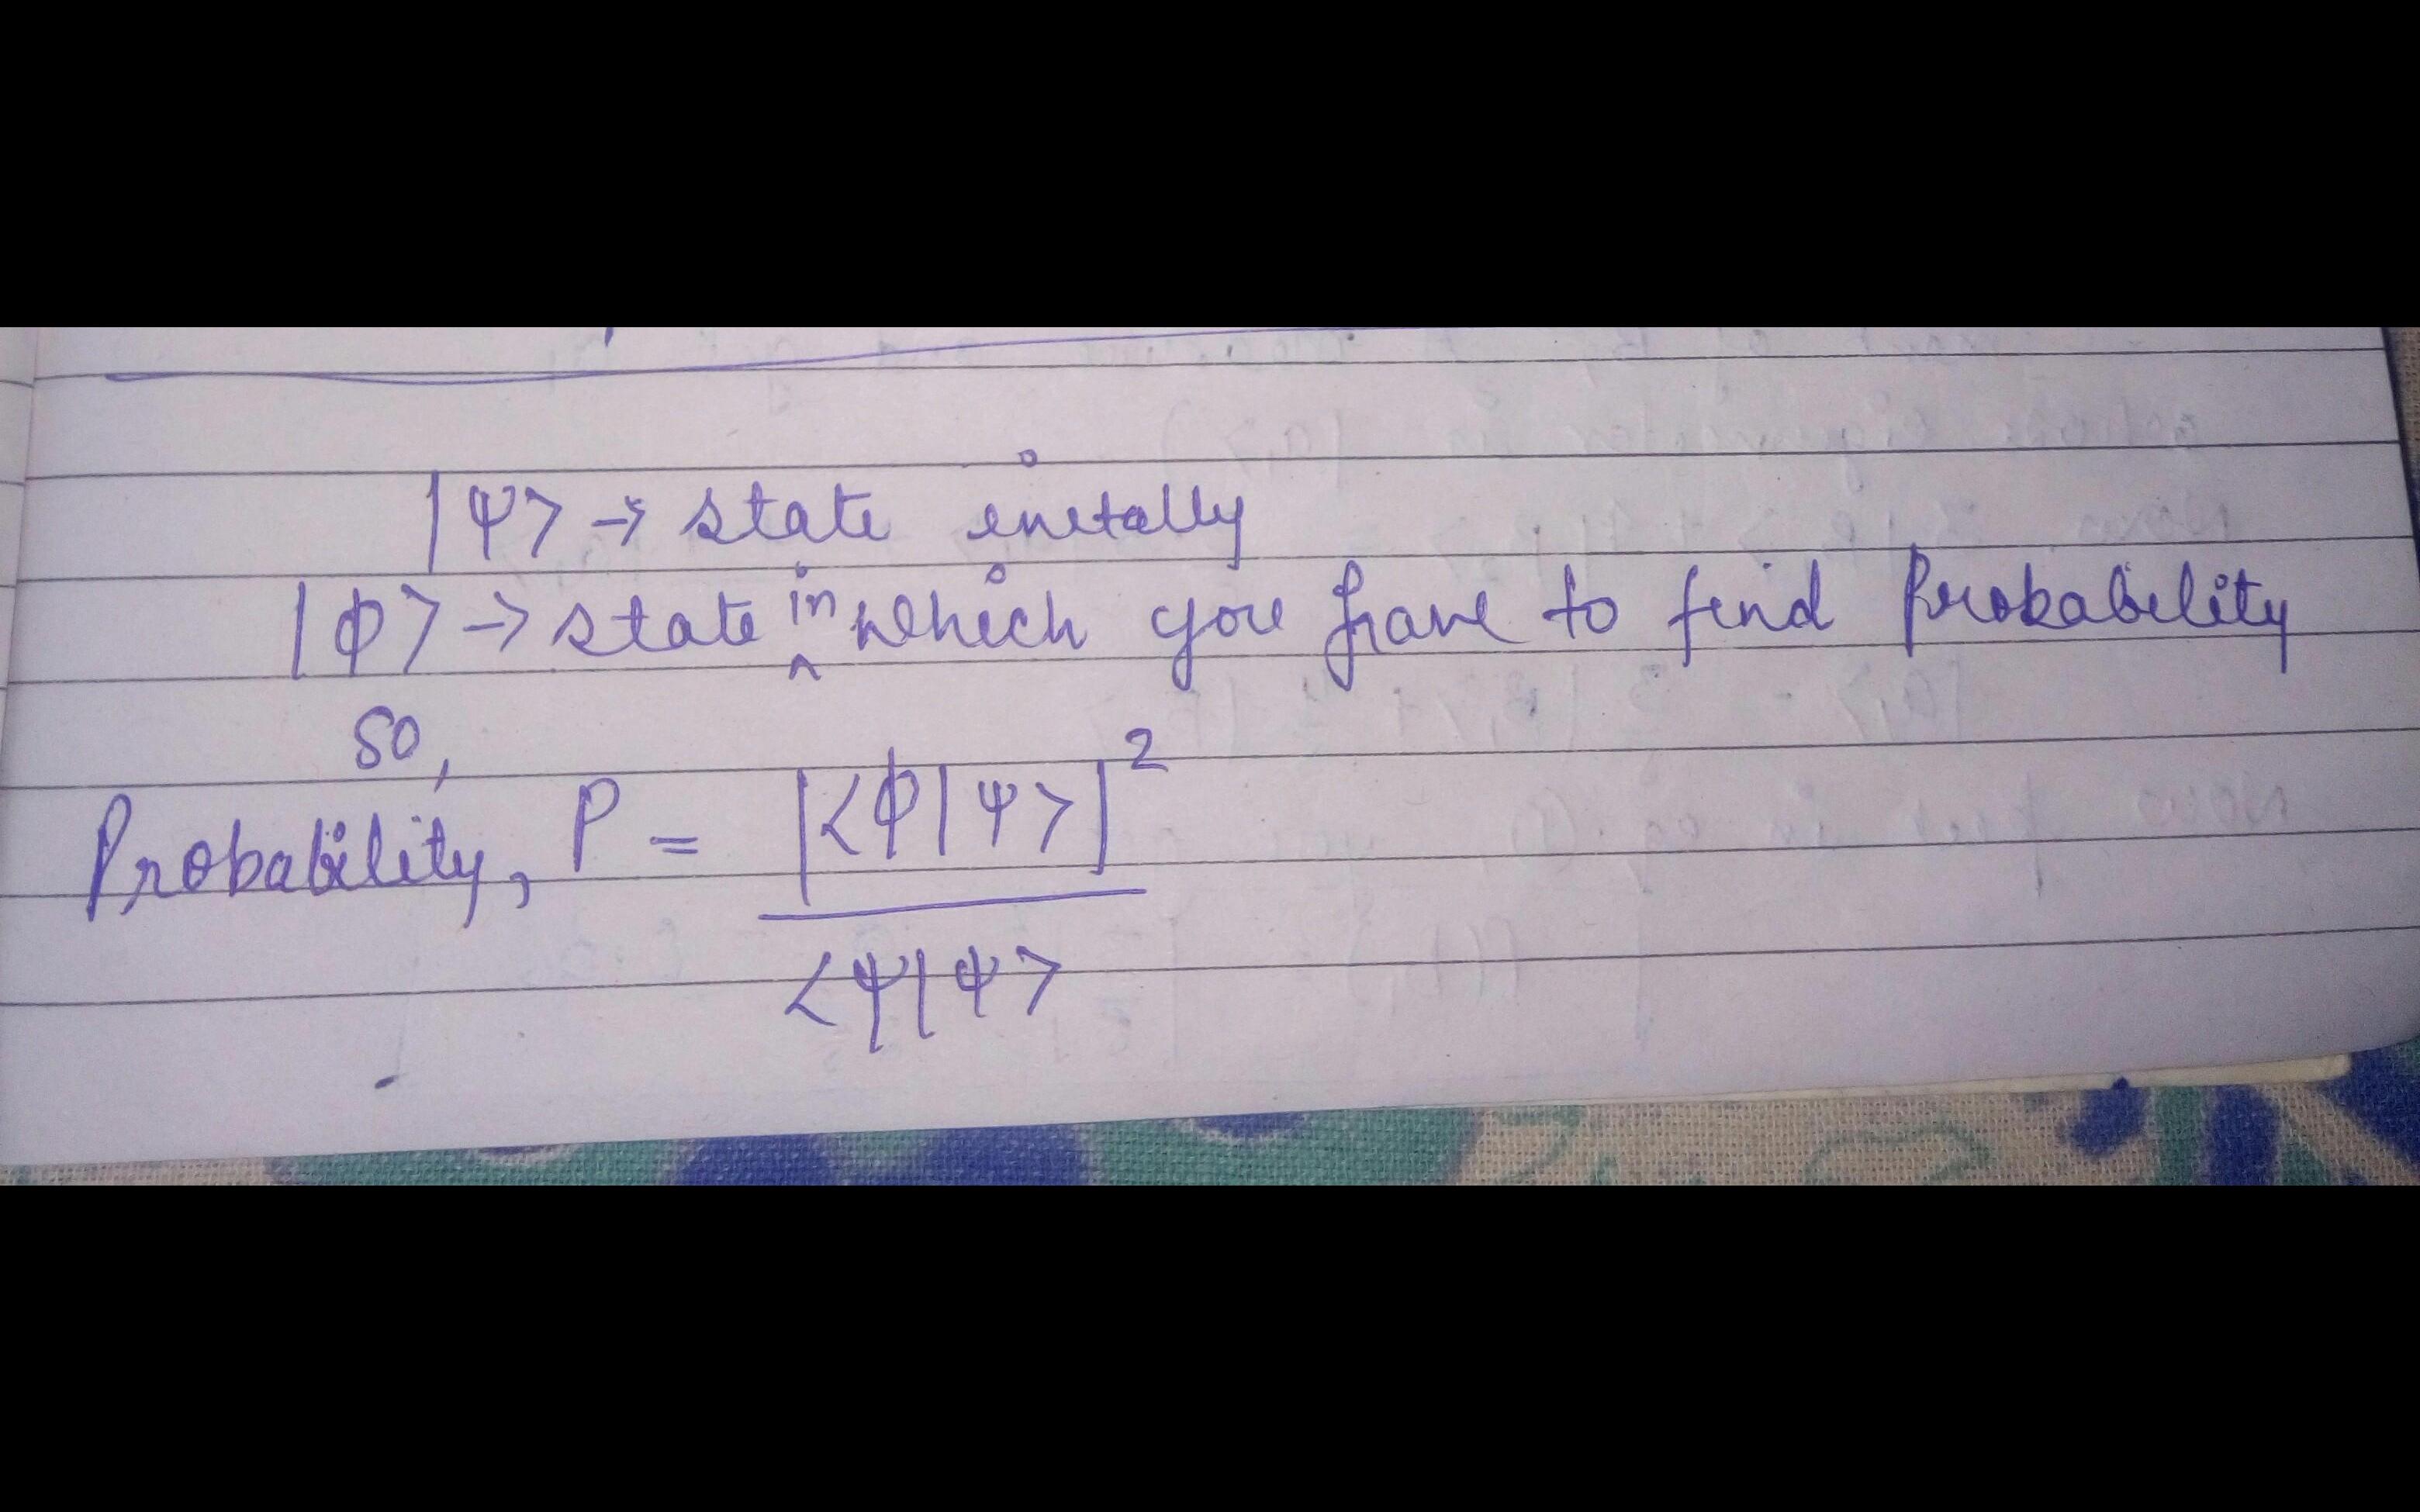 |ψ> → state initally
|φ> → state in which you have to find Probability
so,
Probability, P = |<φ|ψ>|²
<ψ|ψ>